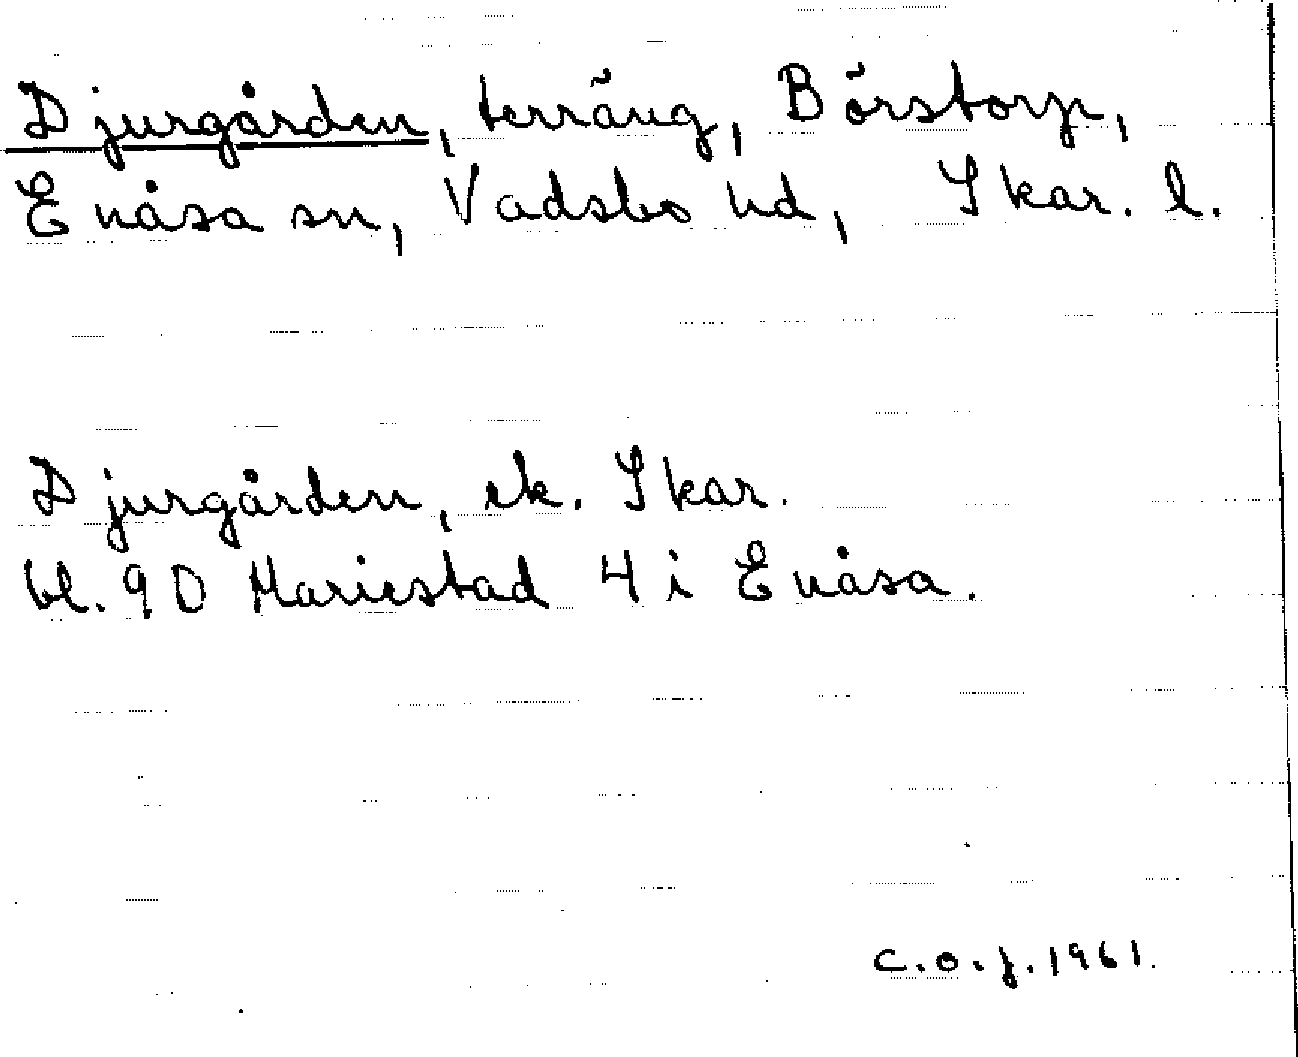 Djurgården, terräng, Börstorp,
Enåsa sn, Vadsbo hd, Skar. l.
Djurgården, ek. Skar.
bl. 9D Mariestad 4 i Enåsa.
c.o.j. 1961.